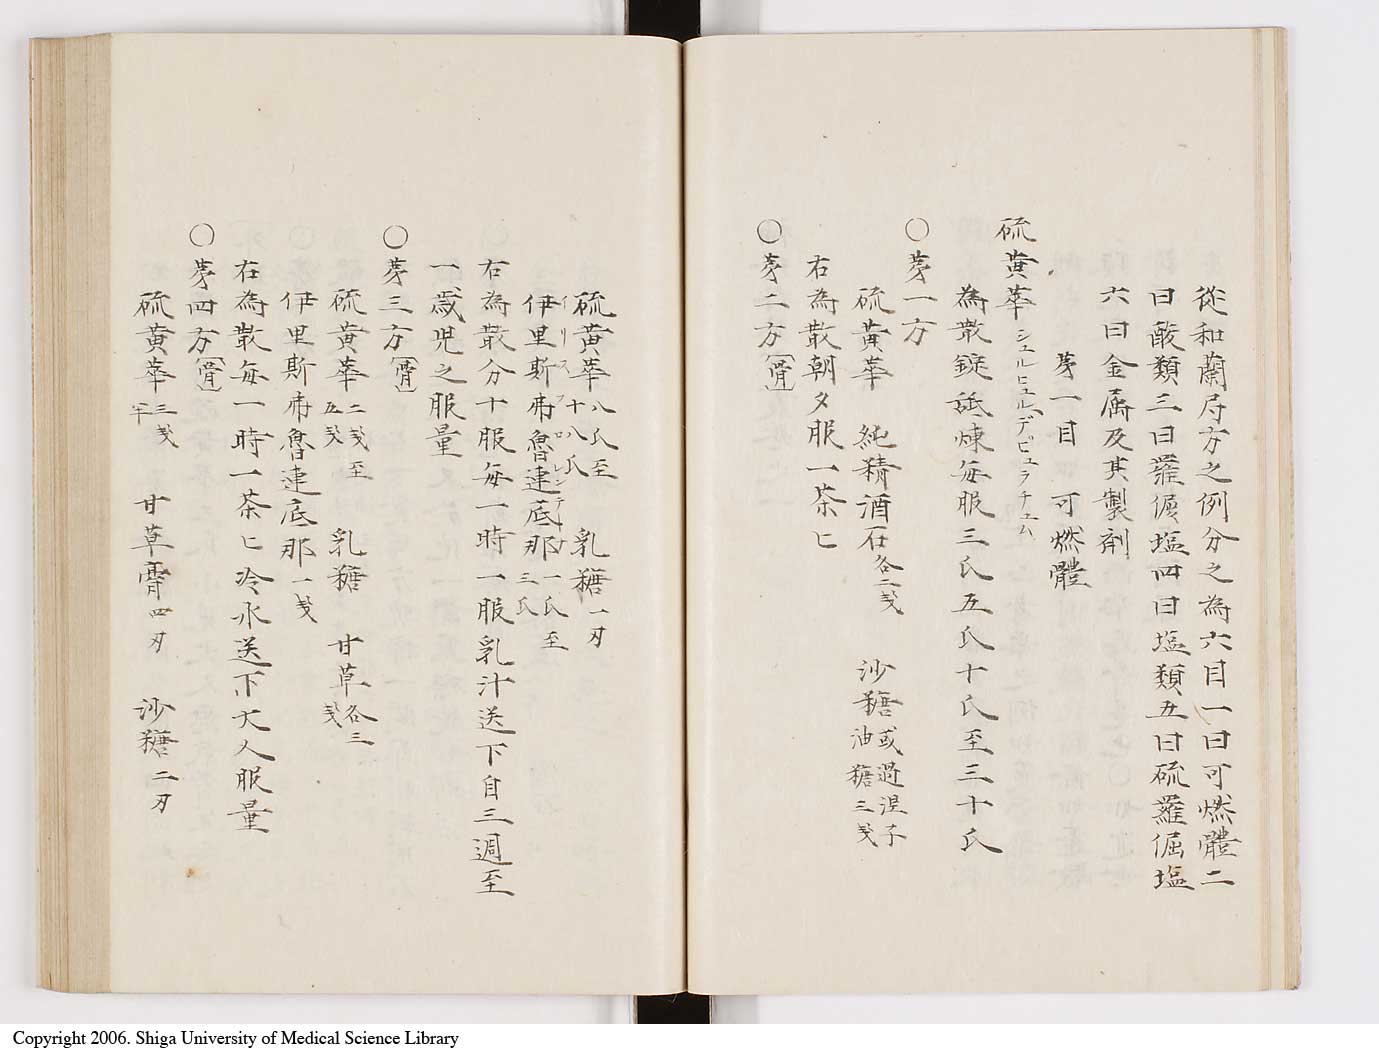 從和蘭局方之例分之為六目一曰可燃體二
曰酸類三曰羅偭塩四曰塩類五曰硫羅倔塩
六曰金属及其製剤
茅一目 可燃體
硫黄華 シュルヒュルデピュラチュム
為散錠舐煉毎服三氏五氏十氏至三十氏
〇茅一方
硫黄華 純精酒石各二戔 沙糖或過涅子油糖三戔
右為散朝夕服一茶匕
〇茅二方〔骨〕
硫黄華八氏至十八氏 乳糖一刄
伊里斯弗魯連底那一氏至三氏 イリスフロレンテーナ
右為散分十服毎一時一服乳汁送下自三週至
一歳児之服量
〇茅三方〔骨〕
硫黄華二戔至五戔 乳糖 甘草各三戔
伊里斯弗魯連底那一戔
右為散毎一時一茶匕冷水送下大人服量
〇茅四方〔骨〕
硫黄華三戔半 甘草霄四刄 沙糖二刄
Copyright 2006. Shiga University of Medical Science Library